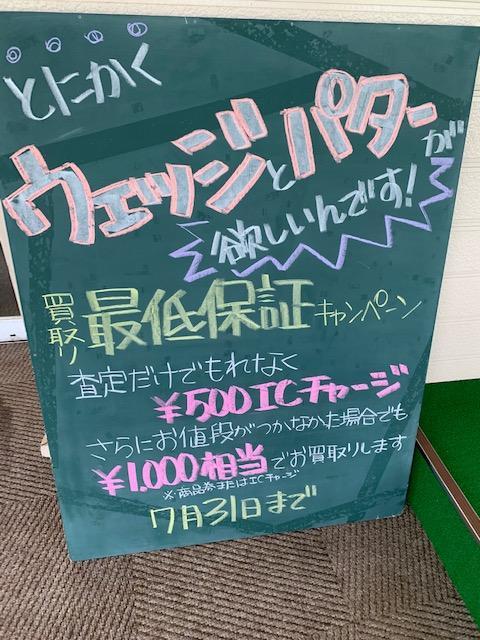 とにかく
ウェッジとパターが
欲しいんです!
買取り最低保証キャンペーン
査定だけでもれなく
¥500ICチャージ
さらにお値段がつかなかった場合でも
¥1,000相当でお買取りします
※商品券またはICチャージ
7月31日まで